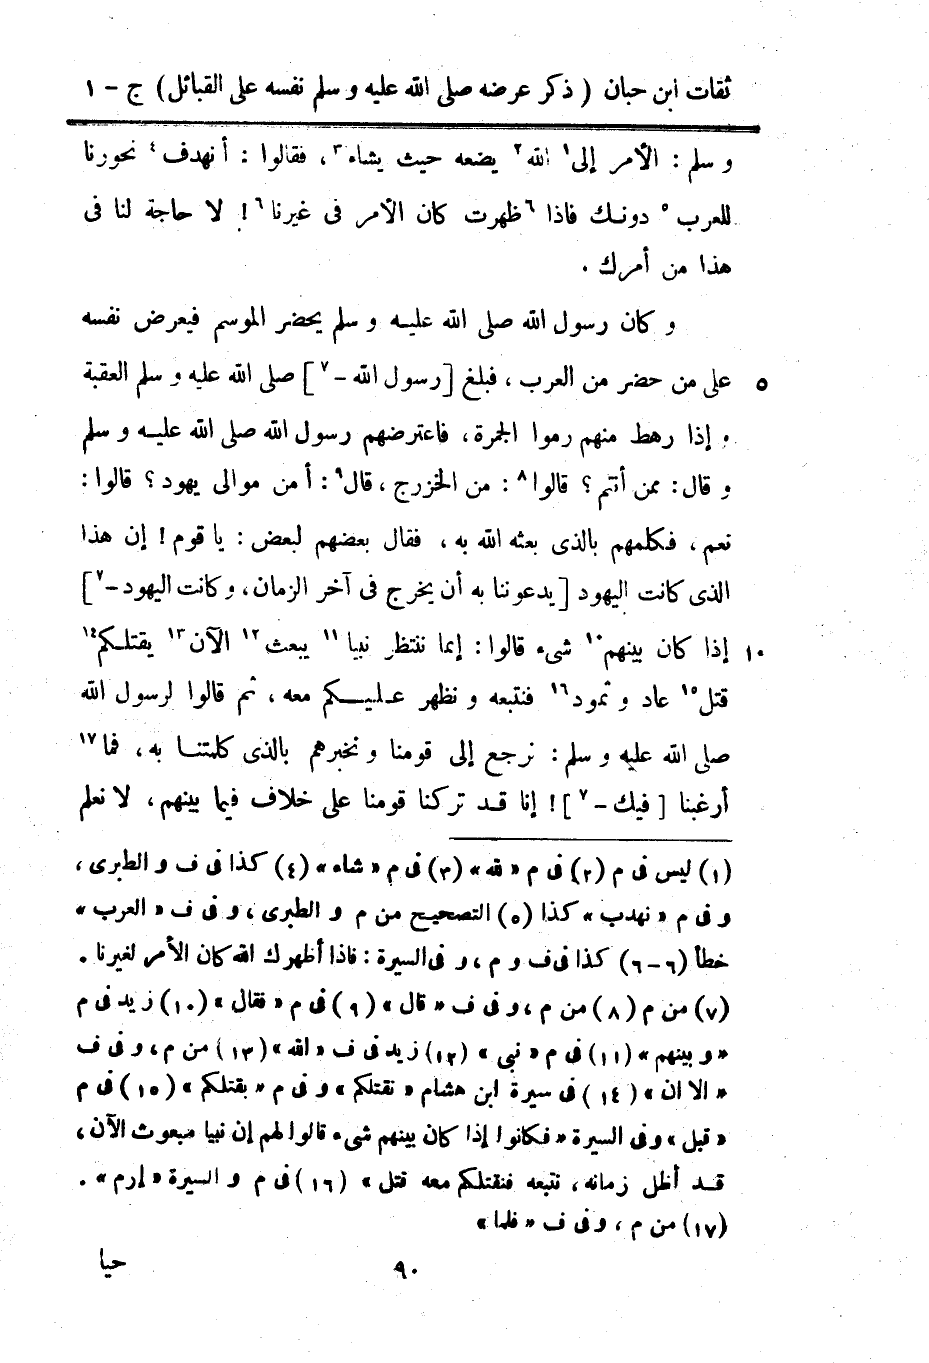 ثقات ابن حبان ( ذكر عرضه صلى الله عليه و سلم نفسه على القبائل) ج - ١
و سلم : الأمر إلى١ الله٢ يضعه حيث يشاء٣ ، فقالوا : أنهدف٤ نحورنا
للعرب٥ دونك فاذا٦ ظهرت كان الأمر فى غيرنا٦ ! لا حاجة لنا فى
هذا من أمرك .
و كان رسول الله صلى الله عليه و سلم يحضر الموسم فيعرض نفسه
٥ على من حضر من العرب ، فبلغ [رسول الله - ٧] صلى الله عليه و سلم العقبة
و إذا رهط منهم رموا الجمرة ، فاعترضهم رسول الله صلى الله عليه و سلم
و قال : ممن أنتم ؟ قالوا٨ : من الخزرج ، قال٩ : أمن موالى يهود ؟ قالوا :
نعم ، فكلمهم بالذى بعثه الله به ، فقال بعضهم لبعض : يا قوم ! إن هذا
الذى كانت اليهود [يدعوننا به أن يخرج فى آخر الزمان ، وكانت اليهود - ٧]
١٠ إذا كان بينهم١٠ شىء قالوا : إنما ننتظر نبيا١١ يبعث١٢ الآن١٣ يقتلكم١٤
قتل١٥ عاد و ثمود١٦ فنتبعه و نظهر عليكم معه ، ثم قالوا لرسول الله
صلى الله عليه و سلم : نرجع إلى قومنا و نخبرهم بالذى كلمتنا به ، فما١٧
أرغبنا [ فيك - ٧ ] ! إنا قد تركنا قومنا على خلاف فيما بينهم ، لا نعلم
(١) ليس فى م (٢) فى م « لله » (٣) فى م « شاء » (٤) كذا فى ف و الطبرى ،
و فى م « نهدب » كذا (٥) التصحيح من م و الطبرى ، و فى ف « العرب »
خطأ (٦-٦) كذا فى ف و م ، و فى السيرة : فاذا أظهرك الله كان الأمر لغيرنا .
(٧) من م (٨) من م ، و فى ف « قال » (٩) فى م « فقال » (١٠) زيد فى م
« و بينهم » (١١) فى م « نبى » (١٢) زيد فى ف « الله » (١٣) من م ، و فى ف
« الا ان » (١٤) فى سيرة ابن هشام « نقتلكم » و فى م « بقتلكم » (١٥) فى م
« قبل » وفى السيرة « فكانوا إذا كان بينهم شىء قالوا لهم إن نبيا مبعوث الآن ،
قد أظل زمانه ، نتبعه فنقتلكم معه قتل » (١٦) فى م و السيرة « إرم » .
(١٧) من م ، و فى ف « فلما »
٩٠ حيا